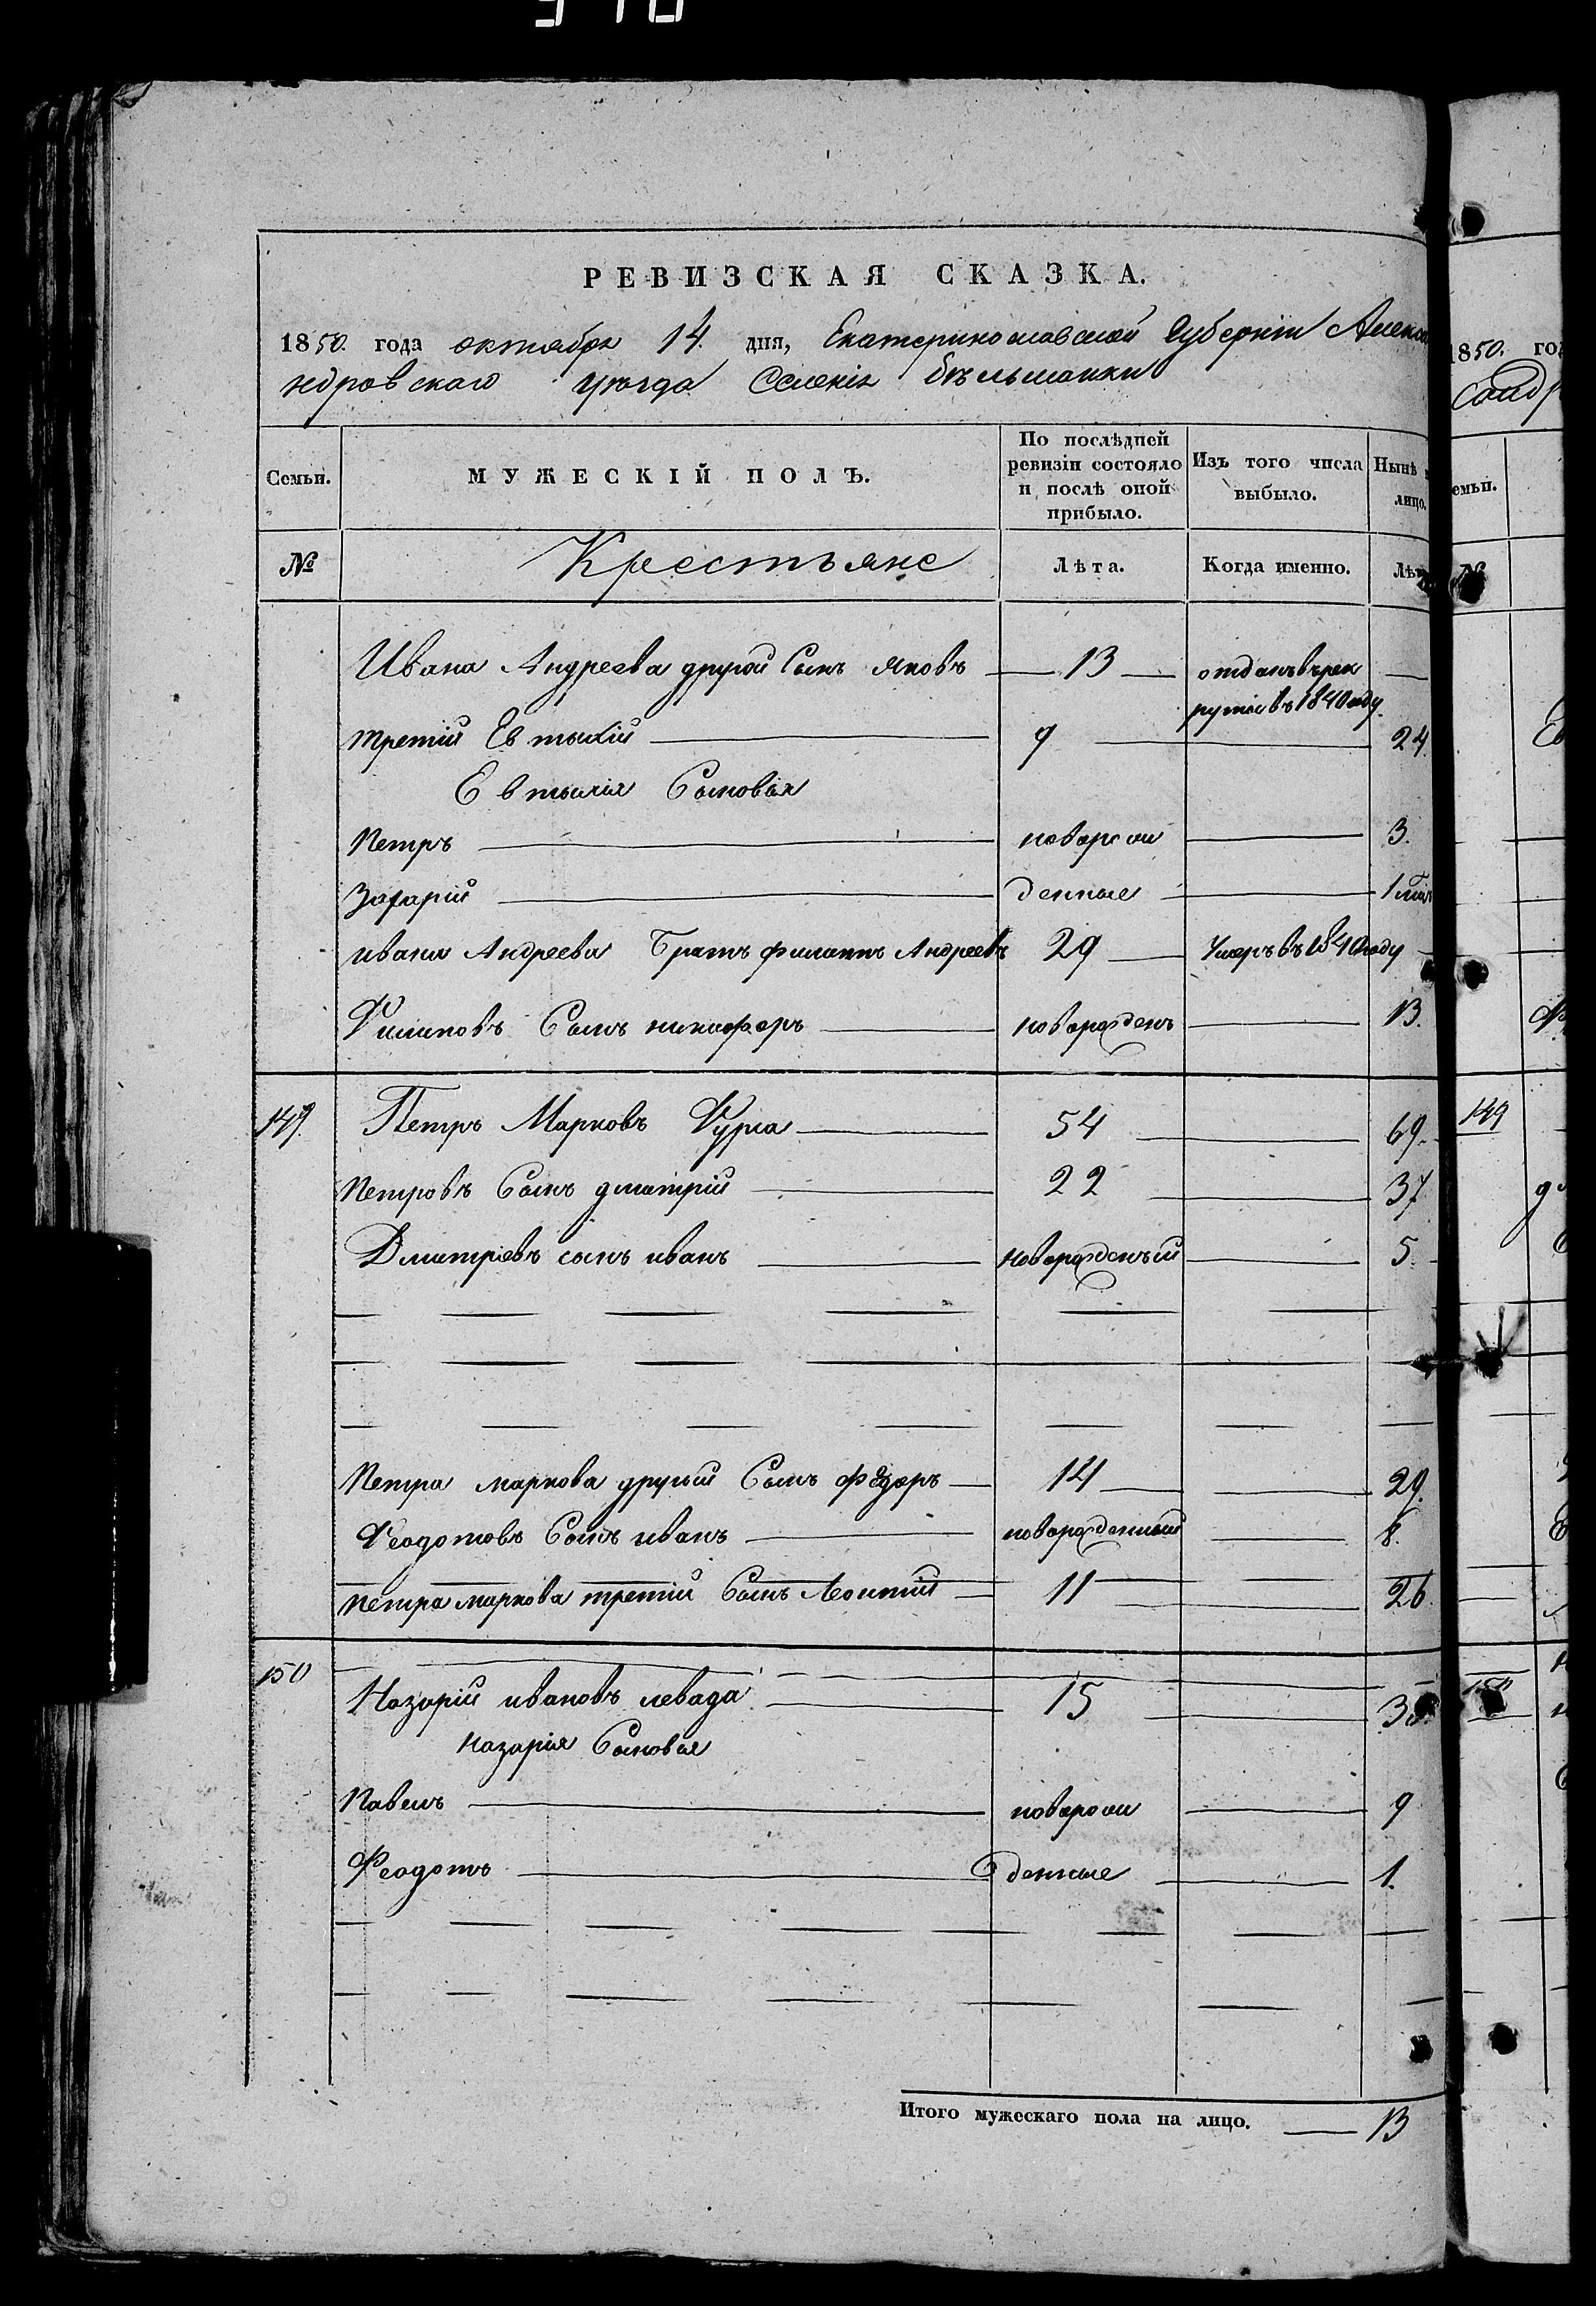 РЕВИЗСКАЯ СКАЗКА.
1850. года октября 14. дня, Екатеринославской Губерніи Алекса
ндровскаго уѣзда Селенія бѣльманки
Семьи.
МУЖЕСКІЙ ПОЛЪ.
По послѣдней ревизіи состояло и послѣ оной прибыло.
Изъ того числа выбыло.
Нынѣ лицо.
№
Крестьяне
Лѣта.
Когда именно.
Лѣт
Ивана Андреева другой Сынъ яковъ 13 отданъ въ рек
руты въ 1840 году.
третій Евтихій 9 24.
Евтихія Сыновья
Петръ новорож 3.
Захарій денные 1
ивана Андреева Братъ филипъ Андреевъ 29 Умеръ въ 1840 году
Филиповъ Сынъ никифоръ новорожденъ 13.
149. Петръ Марковъ 54 69.
Петровъ Сынъ дмитрій 22 37
Дмитріевъ сынъ иванъ новорожденый 5.
Петра маркова другий Сынъ фѣдоръ 14 29.
Феодотовъ Сынъ иванъ новорожденный 8.
петра маркова третій Сынъ Леонтій 11 26.
150 Назарій ивановъ левада 15
назарія Сыновья
Павелъ новорож 9
Феодотъ денные 1.
Итого мужескаго пола на лицо. 13
1850. год
Сандр
емьи.
№
149
150